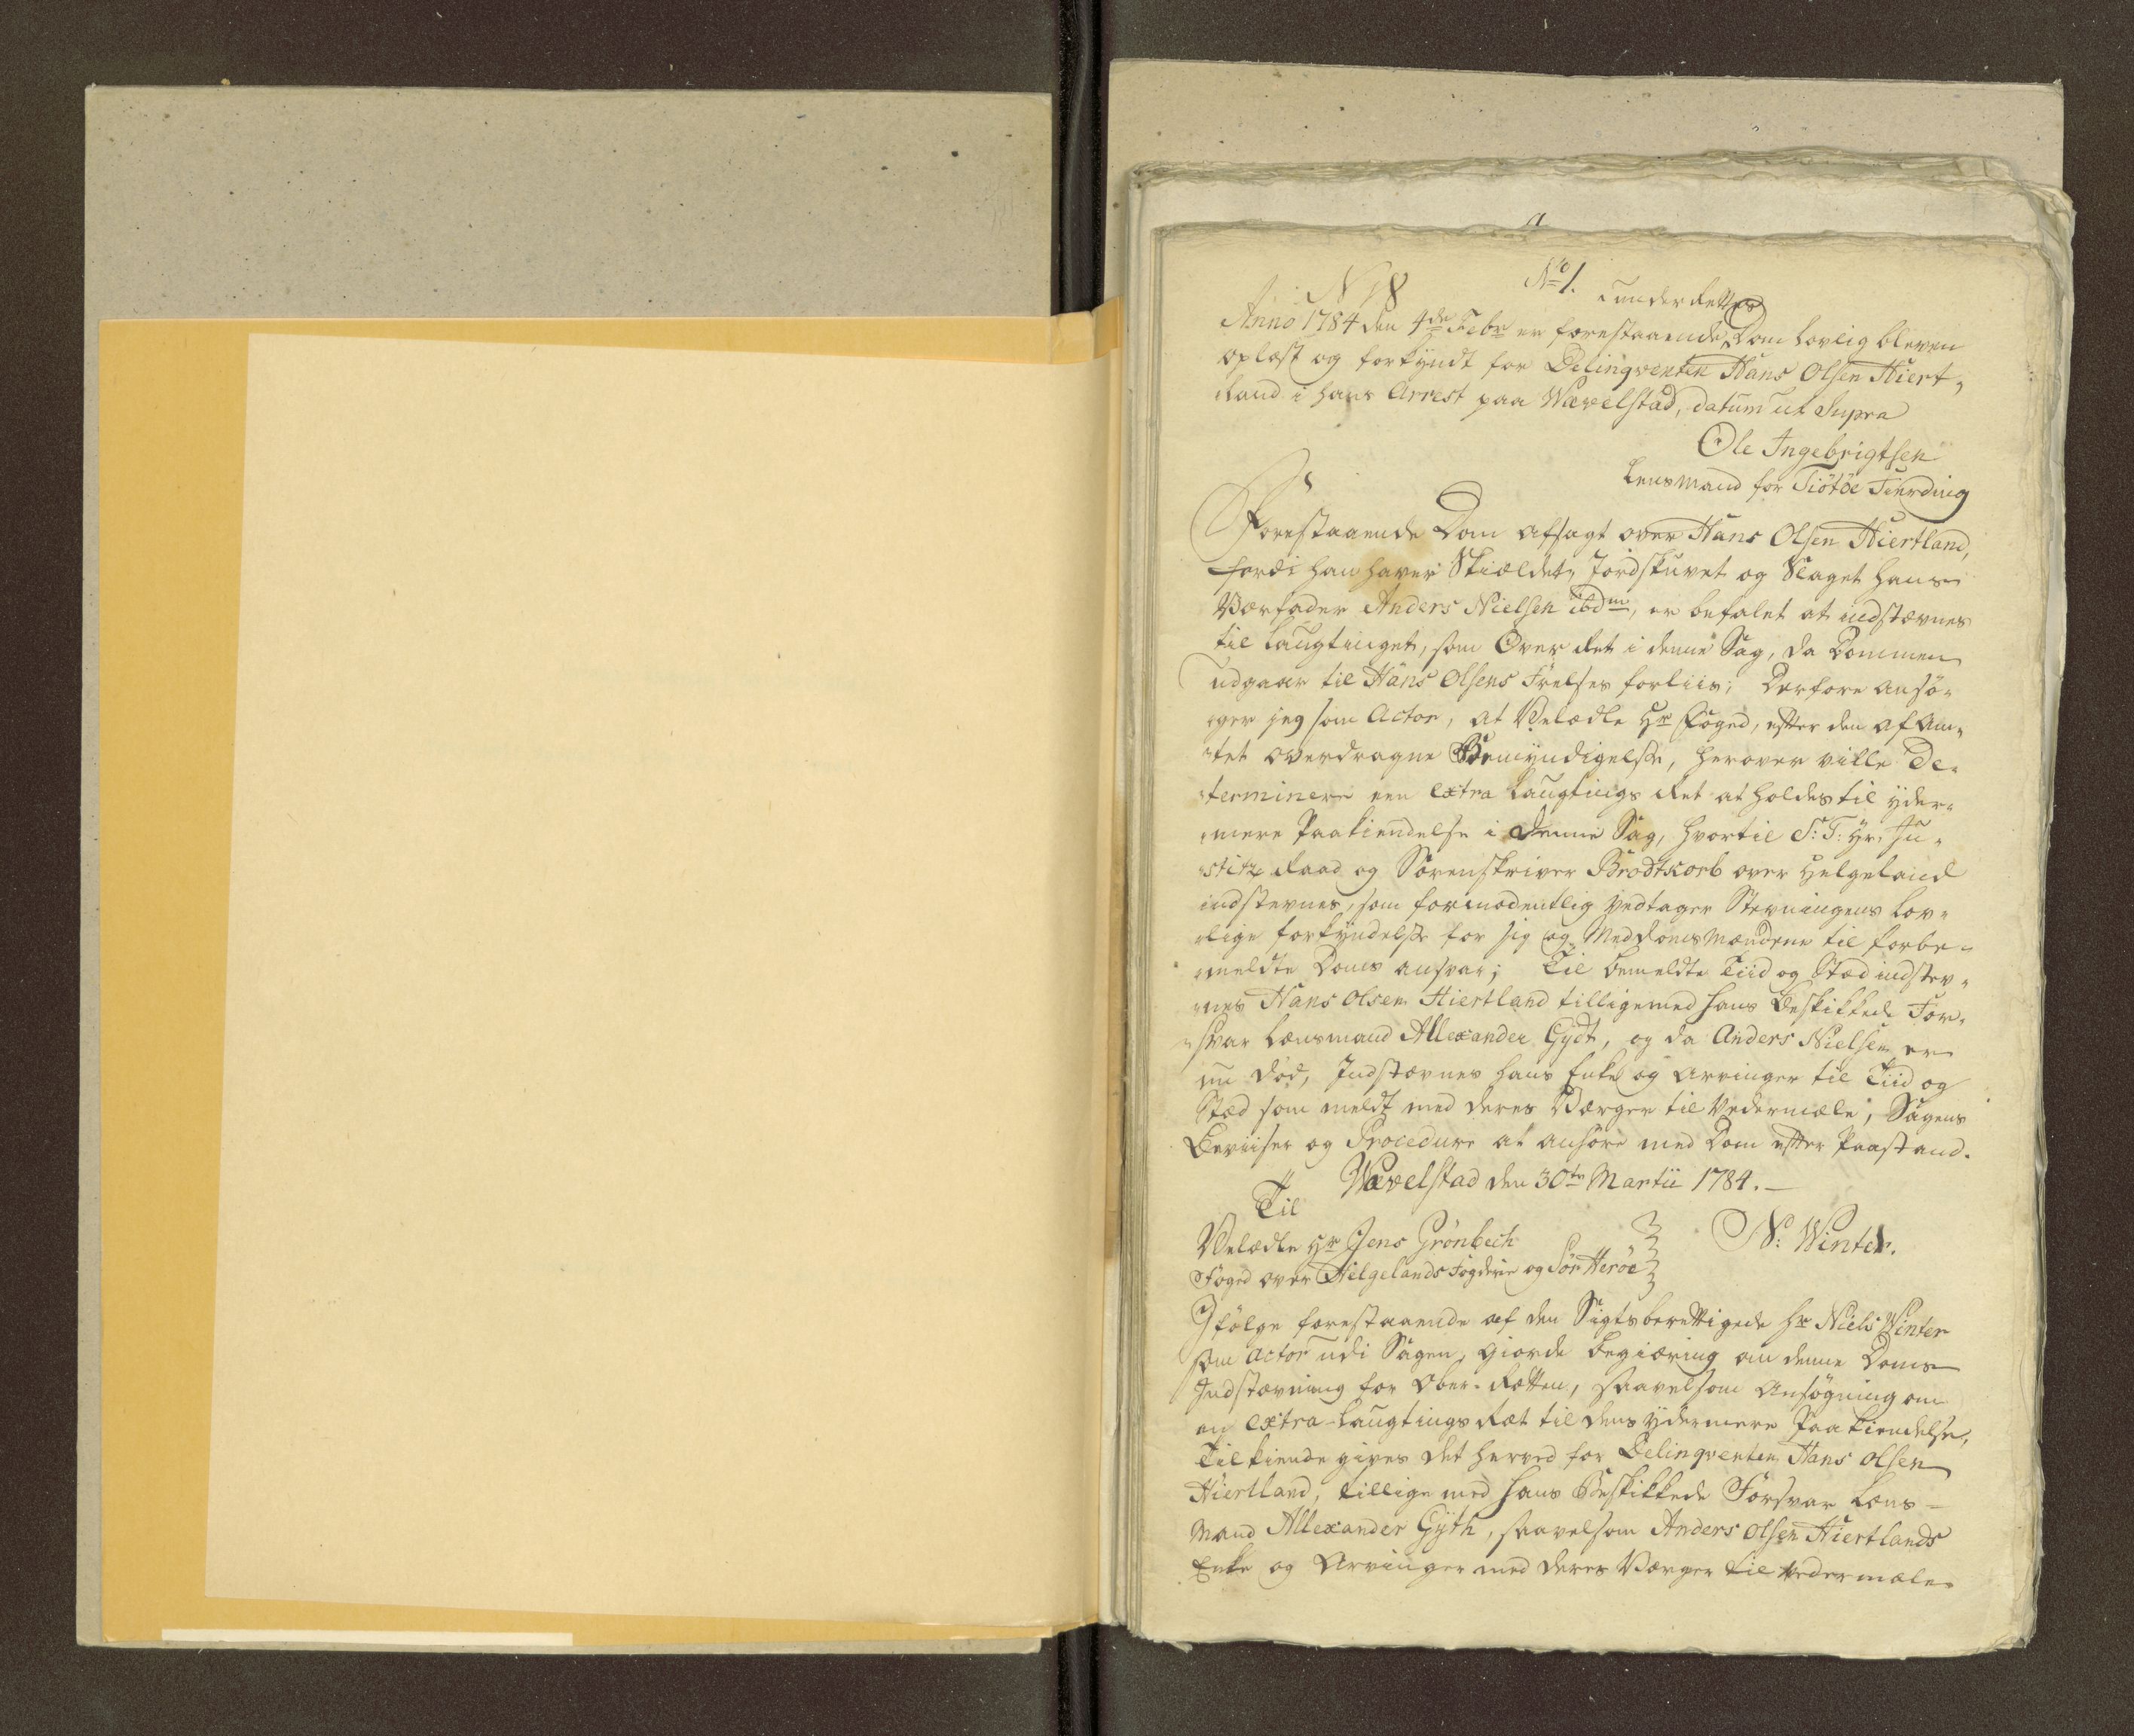 No 1.
underrettes
Anno 1784 den 4de Febr er forestaaende Dom lovlig bleven
oplæst og forkyndt for Delinqventen Hans Olsen Hiert-
land i hans Arrest paa Wævelstad, datum ut Supra
Ole Ingebrigtsen
Lensmand for Tiötöe Fierding
Forestaaende Dom afsagt over Hans Olsen Hiertland,
fordi han haver Skieldet, Jordskuvet og Slaget hans
Værfader Anders Nielsen ibdm, er befalet at indstævnes
til Laugtinget, som Over Ret i denne Sag, da Dommen
udgaar til Hans Olsens Frelses forliis; Derfore ansö-
ger jeg som Actor, at Velædle Hr Foged, efter den af Am-
tet overdragne Bemyndigelse, herover ville De-
terminere een extra Laugtings Ret at holdes til yder-
mere Paakiendelse i denne Sag, hvortil S: T: Hr. Ju-
stitz Raad og Sorenskriver Brodtkorb over Helgeland
indstevnes, som formodentlig vedtager Stevningens lov-
lige forkyndelse for sig og Meddomsmændene til forbe-
meldte Doms ansvar; Til bemeldte Tiid og Stæd indstev-
nes Hans Olsen Hiertland tilligemed hans Beskikkede For-
svar Lensmand Allexander Gydt, og da Anders Nielsen er
nu död, Indstævnes hans Enke og Arvinger til Tiid og
Stæd som meldt med deres Værger til Vedermæle, Sagens
Beviiser og Procedure at anhöre med Dom efter Paastand.
Wævelstad den 30te Martii 1784.
Til
Velædle Hr Jens Grönbech
N: Winter.
Foged over Helgelands Fogderie og Sör Heröe
Ifölge forestaaende af den Sigtsberettigede Hr Niels Winter
som Actor udi Sagen, giorde begiæring om denne Doms
Indstævning for Ober-Retten, saavelsom Ansögning om
en extra-Laugtings Ræt til dens ydermere Paakiendelse,
Tilkiende gives det herved for Delinqventen Hans Olsen
Hiertland, tillige med hans Beskikkede Forsvar Lens-
Mand Allexander Gyth, saavelsom Anders Olsen Hiertlands
Enke og Arvinger med deres Værger til Vedermæle